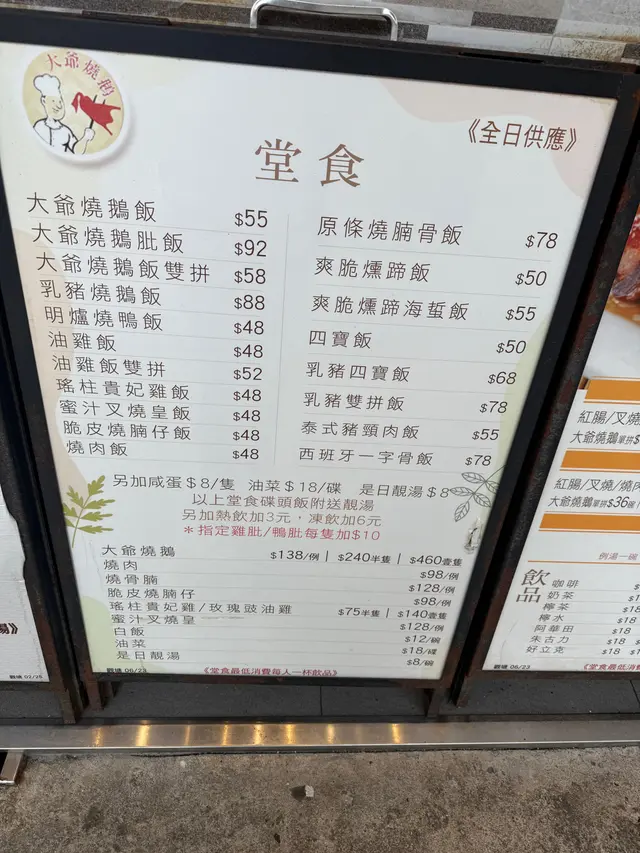 大爺燒鵝
《全日供應》
堂食
大爺燒鵝飯 $55
大爺燒鵝肶飯 $92
大爺燒鵝飯雙拼 $58
乳豬燒鵝飯 $88
明爐燒鴨飯 $48
油雞飯 $48
油雞飯雙拼 $52
瑤柱貴妃雞飯 $48
蜜汁叉燒皇飯 $48
脆皮燒腩仔飯 $48
燒肉飯 $48
原條燒腩骨飯 $78
爽脆燻蹄飯 $50
爽脆燻蹄海蜇飯 $55
四寶飯 $50
乳豬四寶飯 $68
乳豬雙拼飯 $78
泰式豬頸肉飯 $55
西班牙一字骨飯 $78
另加咸蛋$8/隻 油菜$18/碟 是日靚湯$8
以上堂食碟頭飯附送靚湯
另加熱飲加3元，凍飲加6元
*指定雞肶/鴨肶每隻加$10
大爺燒鵝 $138/例 | $240半隻 | $460壹隻
燒肉 $98/例
燒骨腩 $128/例
脆皮燒腩仔 $98/例
瑤柱貴妃雞/玫瑰豉油雞 $75半隻 | $140壹隻
蜜汁叉燒皇 $128/例
白飯 $12/碗
油菜 $18/碟
是日靚湯 $8/碗
觀塘 06/23
《堂食最低消費每人一杯飲品》
紅腸/叉燒
大爺燒鵝單拼$
紅腸/叉燒/燒肉
大爺燒鵝單拼$36
例湯一碗
飲品
咖啡 $18
奶茶 $18
檸茶 $18
檸水 $18
阿華田 $18
朱古力 $18
好立克 $18
觀塘 06/23
《堂食最低消
觀塘 02/25